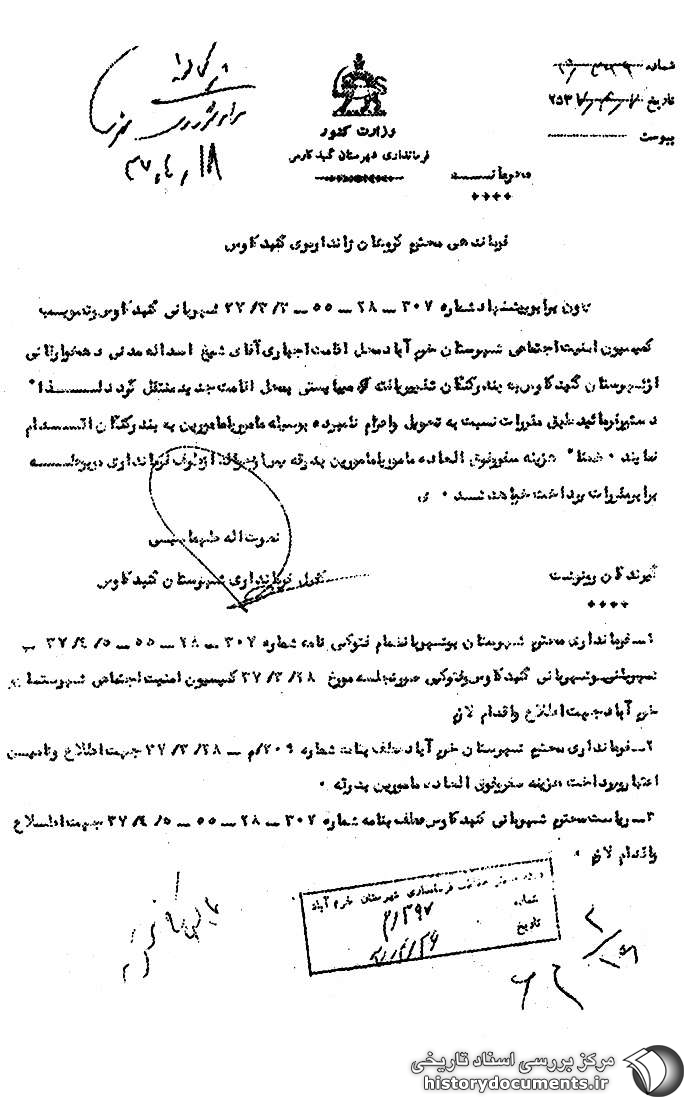 شماره
تاریخ ۷/۴/۲۵۳۷
پیوست
وزارت کشور
فرمانداری شهرستان گنبد کاوس
محرمانه
++++
۳۷/۴/۱۸
فرماندهی محترم گروهان ژاندارمری گنبد کاوس
چون برابر پیشنهاد شماره ۳۰۷ – ۲۸ – ۵۵ – ۳۷/۳/۲ شهربانی گنبد کاوس و تصویب
کمیسیون امنیت اجتماعی شهرستان خرم آباد محل اقامت اجباری آقای شیخ اسداله مدنی دهخوارقانی
از شهرستان گنبد کاوس به بندر کنگان تغییر یافته که میبایستی بمحل اقامت جدید منتقل گردد لـــذا"
دستور فرمائید طبق مقررات نسبت به تحویل و اعزام نامبرده بوسیله مامور یا مامورین به بندر کنگان اقـــدام
نمایند ۰ ضمنا" هزینه سفر و فوق العاده مامور یا مامورین بدرقه از طرف فرمانداری مربوطـــه
برابر مقررات پرداخت خواهد شـد ۰ ی
نصرت اله طهماسبی
کفیل فرمانداری شهرستان گنبد کاوس
گیرندگان رونوشت
++++
۱– فرمانداری محترم شهرستان بانضمام فتوکپی نامه شماره ۳۰۷ – ۲۸ – ۵۵ – ۳۷/۴/۵
شهربانی گنبد کاوس و فتوکپی صورتجلسه مورخ ۳۷/۳/۲۸ کمیسیون امنیت اجتماعی شهرستان
خرم آباد جهت اطلاع و اقدام لازم
۲– فرمانداری محترم شهرستان خرم آباد عطف بنامه شماره ۲۰۹/م – ۳۷/۳/۲۸ جهت اطلاع و تامین
اعتبار و پرداخت هزینه سفر و فوق العاده مامورین بدرقه ۰
۳– ریاست محترم شهربانی گنبد کاوس عطف بنامه شماره ۳۰۷ – ۲۸ – ۵۵ – ۳۷/۴/۵ جهت اطلاع
و اقدام لازم ۰
فرمانداری شهرستان خرم آباد
شماره ۳۹۷/م
تاریخ
مرکز بررسی اسناد تاریخی
historydocuments.ir